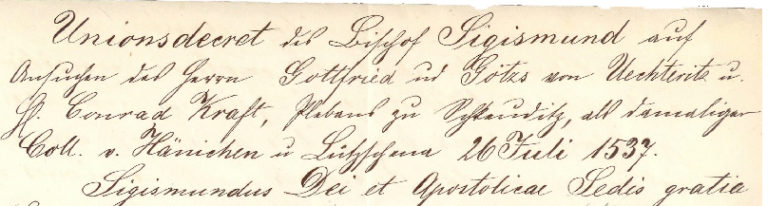 Unionsdecret des Bischof Sigismund auf
Ansuchen des Herrn Gottfried und Götzs von Uechteritz u.
H. Conrad Kraft, Plebans zu Schkeuditz, als damaliger
Coll. v. Hänichen u Lützschena 26 Juli 1537.
Sigismundus Dei et Apostolicae Sedis gratia